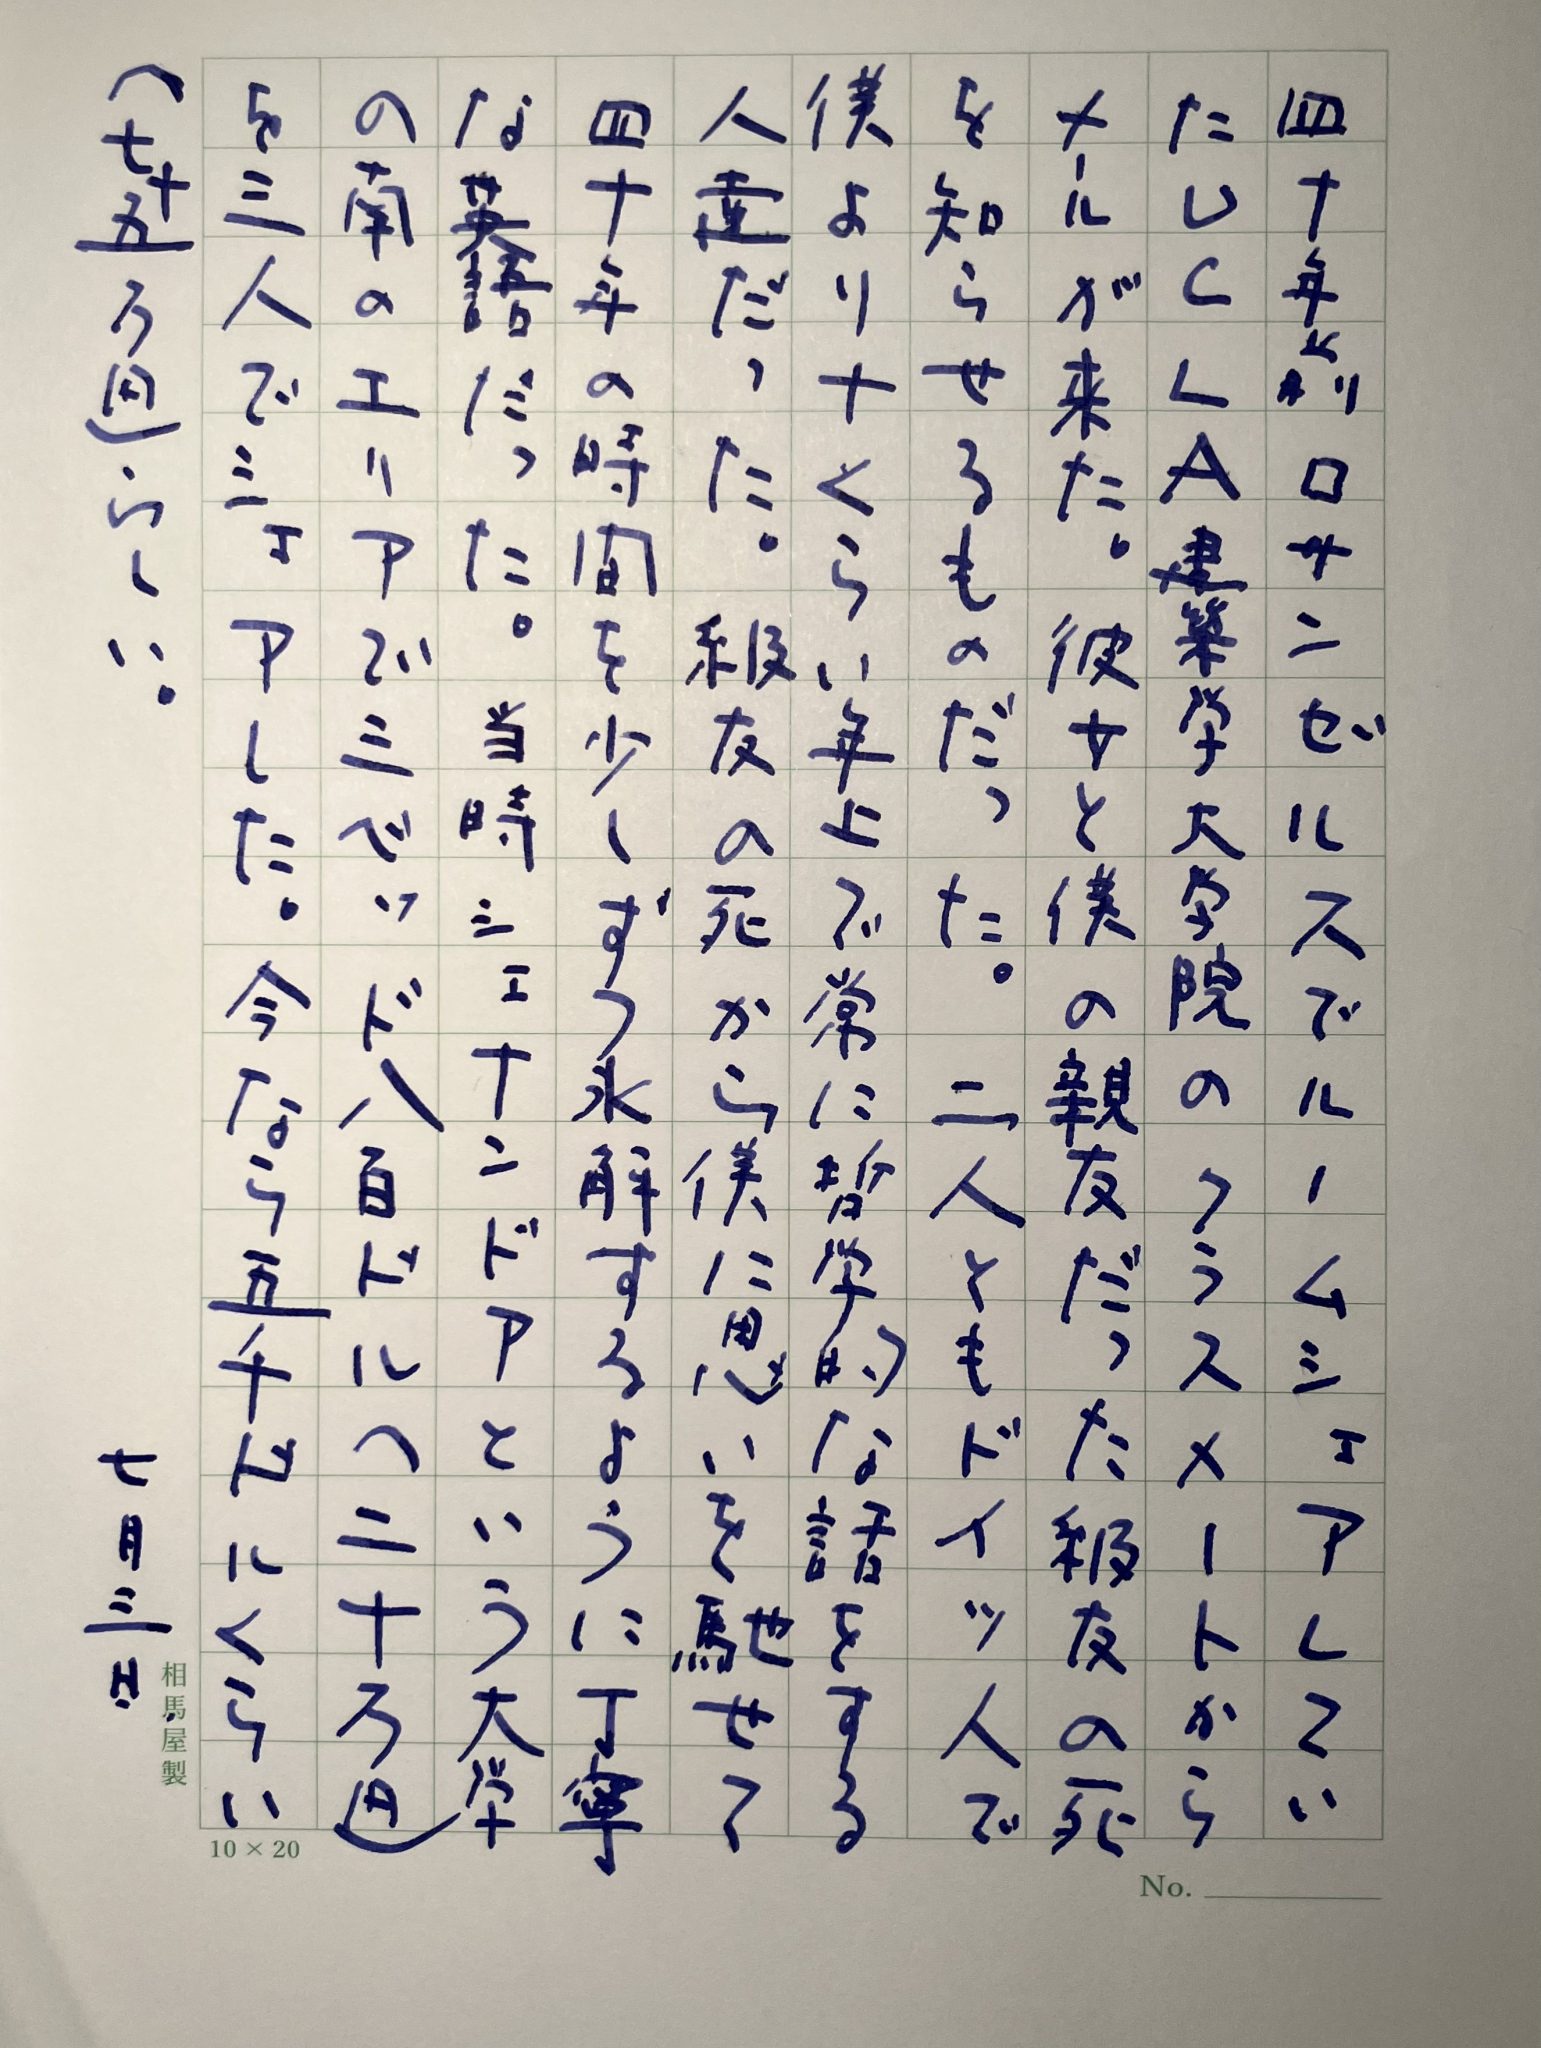 四十年前ロサンゼルスでルームシェアしてい
たUCLA建築学大学院のクラスメートから
メールが来た。彼女と僕の親友だった級友の死
を知らせるものだった。二人ともドイツ人で
僕より十くらい年上で常に哲学的な話をする
人達だった。級友の死から僕に思いを馳せて
四十年の時間を少しずつ氷解するように丁寧
な英語だった。当時シェナンドアという大学
の南のエリアで三ベッド八百ドル(二十万円)
を三人でシェアした。今なら五千ドルくらい
(七十五万円)らしい。
七月三日
相馬屋製
10×20
No.